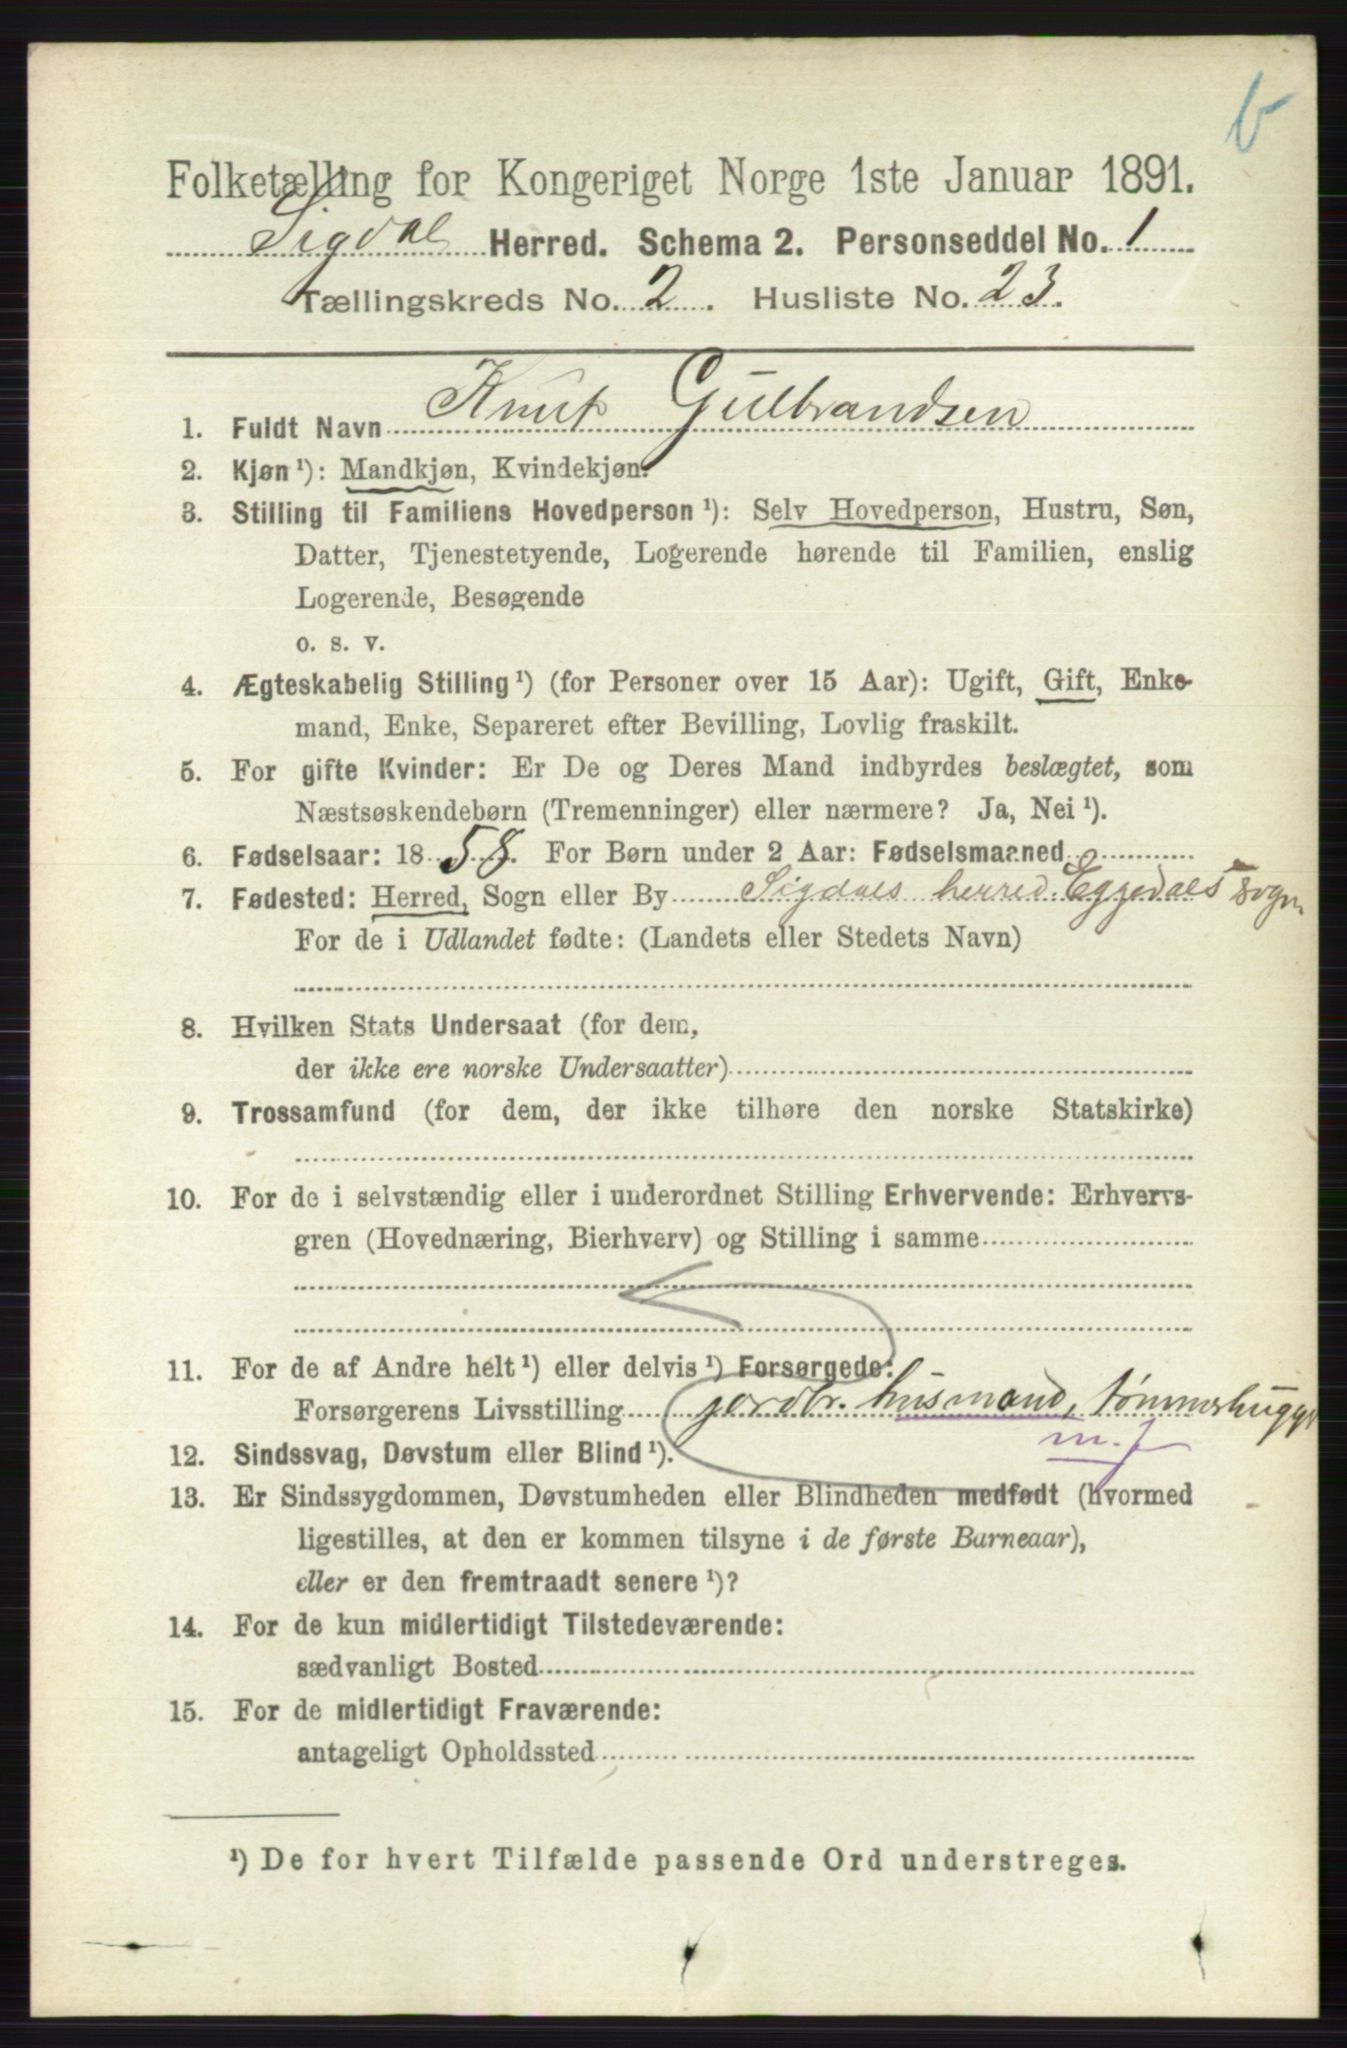 b
Folketælling for Kongeriget Norge 1ste Januar 1891.
Sigdal Herred. Schema 2. Personseddel No. 1
Tællingskreds No. 2. Husliste No. 23.
1. Fuldt Navn Knut Gulbrandsen
2. Kjøn ¹): Mandkjøn, Kvindekjøn.
3. Stilling til Familiens Hovedperson ¹): Selv Hovedperson, Hustru, Søn,
Datter, Tjenestetyende, Logerende hørende til Familien, enslig
Logerende, Besøgende
o. s. v.
4. Ægteskabelig Stilling ¹) (for Personer over 15 Aar): Ugift, Gift, Enke-
mand, Enke, Separeret efter Bevilling, Lovlig fraskilt.
5. For gifte Kvinder: Er De og Deres Mand indbyrdes beslægtet, som
Næstsøskendebørn (Tremenninger) eller nærmere? Ja, Nei ¹).
6. Fødselsaar: 1858. For Børn under 2 Aar: Fødselsmaaned
7. Fødested: Herred, Sogn eller By Sigdals herred. Eggedals sogn
For de i Udlandet fødte: (Landets eller Stedets Navn)
8. Hvilken Stats Undersaat (for dem,
der ikke ere norske Undersaatter)
9. Trossamfund (for dem, der ikke tilhøre den norske Statskirke)
10. For de i selvstændig eller i underordnet Stilling Erhvervende: Erhvervs-
gren (Hovednæring, Bierhverv) og Stilling i samme
11. For de af Andre helt ¹) eller delvis ¹) Forsørgede:
Forsørgerens Livsstilling jordbr. husmand, tømmerhugger
m. j
12. Sindssvag, Døvstum eller Blind ¹).
13. Er Sindssygdommen, Døvstumheden eller Blindheden medfødt (hvormed
ligestilles, at den er kommen tilsyne i de første Barneaar),
eller er den fremtraadt senere ¹)?
14. For de kun midlertidigt Tilstedeværende:
sædvanligt Bosted
15. For de midlertidigt Fraværende:
antageligt Opholdssted
¹) De for hvert Tilfælde passende Ord understreges.